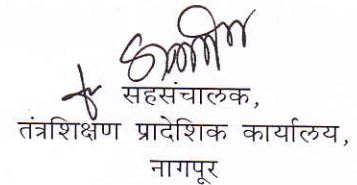 सहसंचालक,
तंत्रशिक्षण प्रादेशिक कार्यालय,
नागपूर